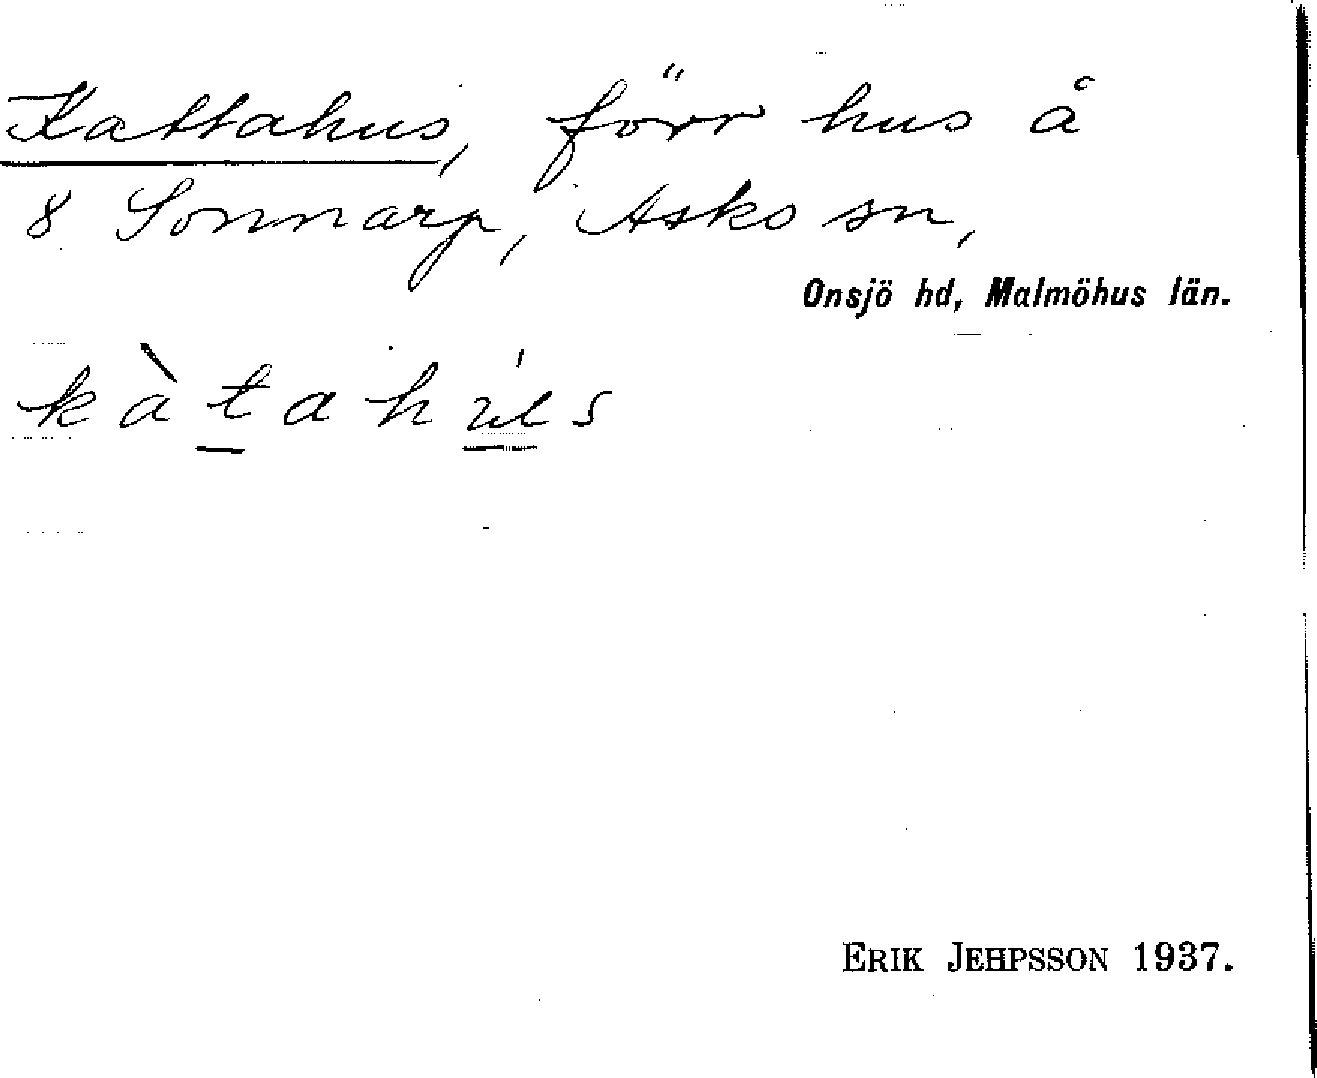 Kattahus, förr hus å
8 Sonnarp, Asks sn,
Onsjö hd, Malmöhus län.
kàtahús
ERIK JEHPSSON 1937.